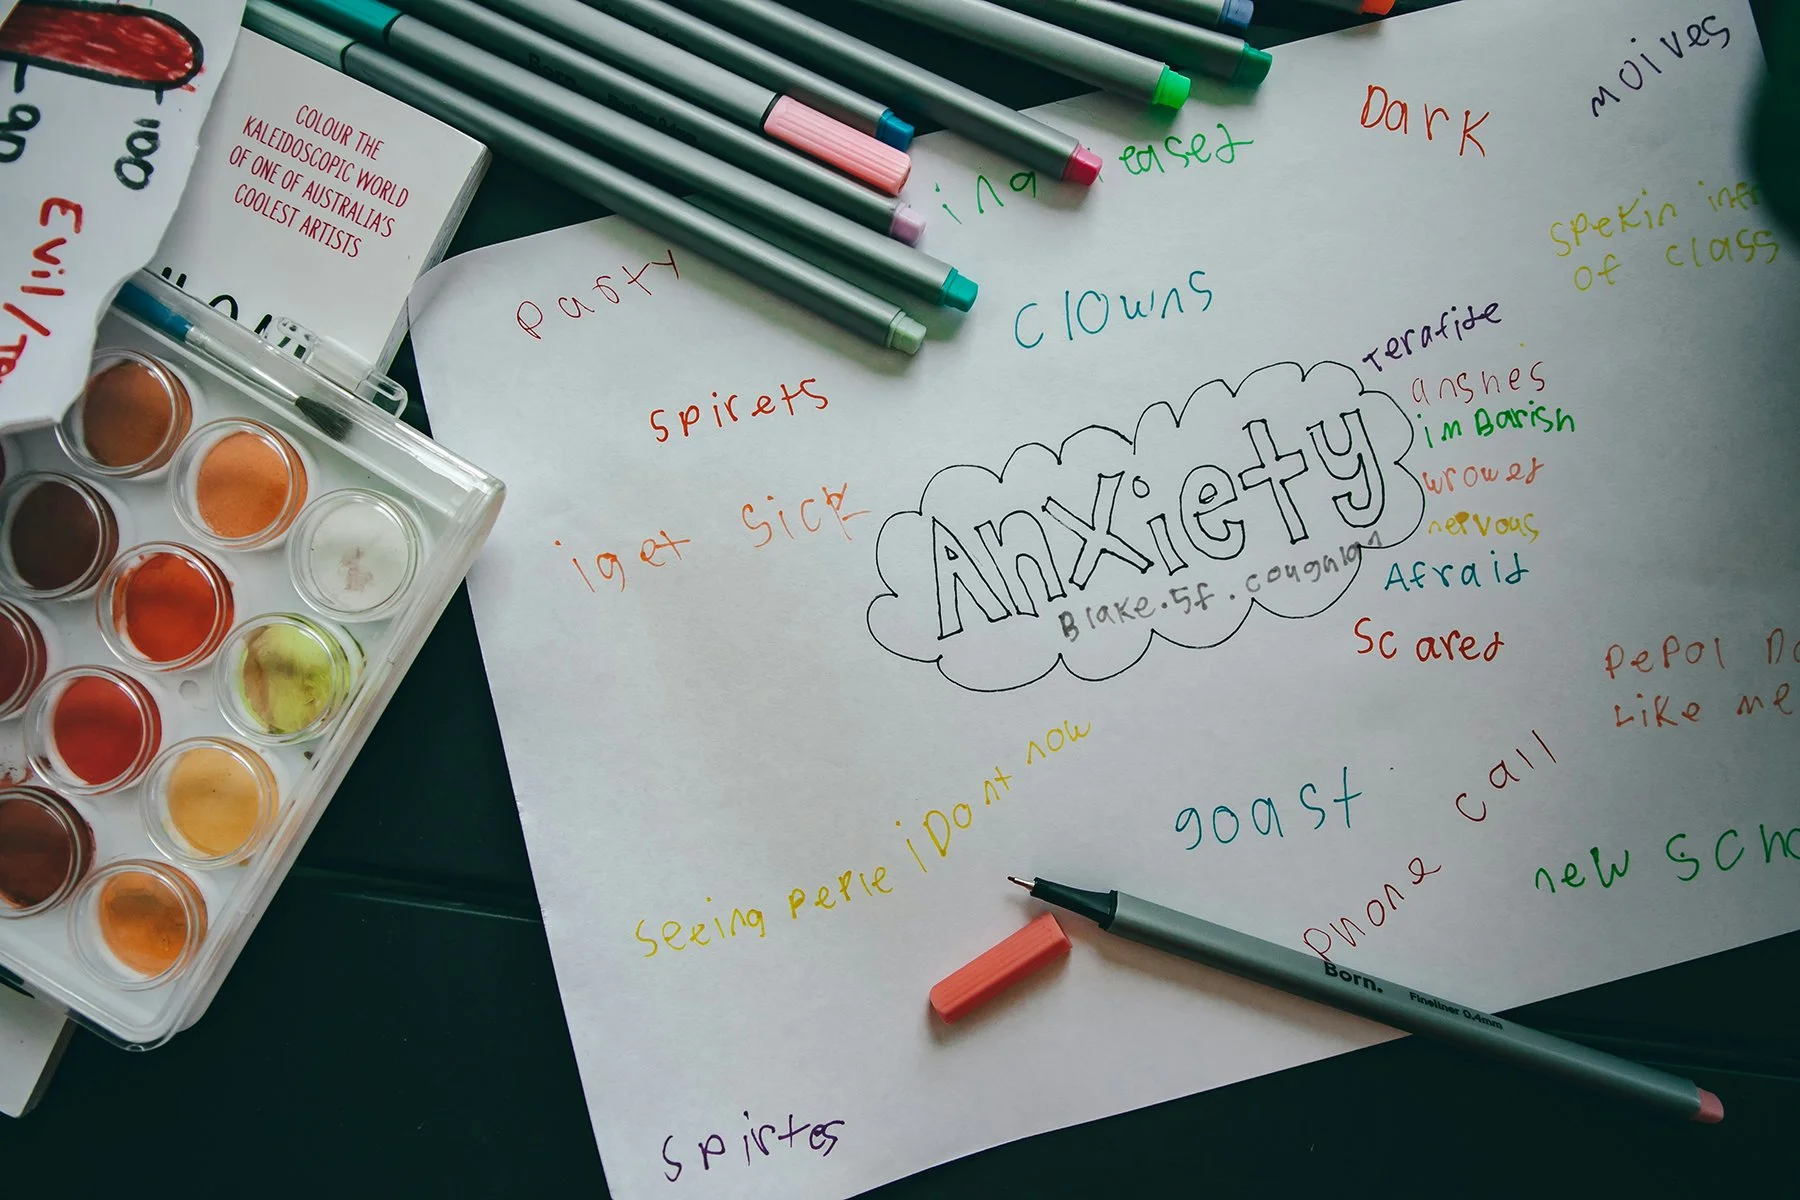 COLOUR THE
KALEIDOSCOPIC WORLD
OF ONE OF AUSTRALIA'S
COOLEST ARTISTS
100
Evil/
moives
Dark
eased
spekin
of class
party
clowns
spirets
iget sick
Anxiety
Blake.5f.coughlan
terafide
anshes
imBarish
wrowed
nervous
Afraid
Scared
pepol
Like me
seeing peple iDont now
goast
phone call
new
Born.
Fineliner 0.4mm
Born.
Fineliner 0.4mm
spirtes